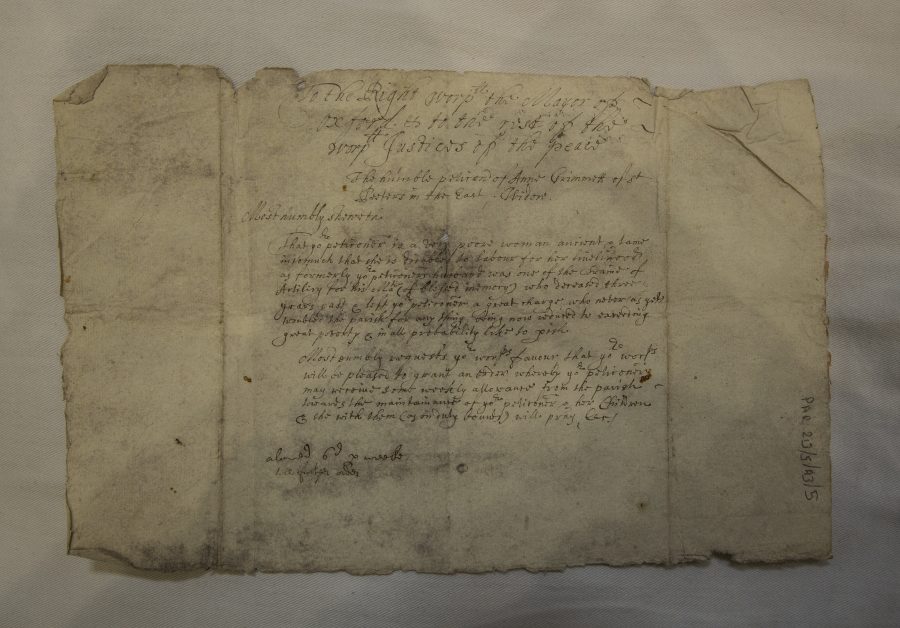 To the Right worpll the Mayor of
oxford & to the rest of the
worpll Justices of the peace
The humble peticon of Anne Crimmett of St
Peeters in the East Widow
Most humbly sheweth
That yor petitioner is a very poore woman ancient & lame
insomuch that she is disabled to labour for her livelihood,
as formerly yor petitioners husband was one of the Traine of
Artillry for his Matie (of blessed memory) who deceased three
years past & left yor petitioner a great charge who never as yet
troubled the parish for any thing being now reduced to
great povrty & in all probability like to pish
Most humbly requests yor worpps favour that yor worpps
will be pleased to grant an order whereby yor petitioner
may receive some weekly allowance from the parish
towards the maintainance of yor petitioner & her Children
& she with them (as in duty bound) will pray, &c
alowed 6d p weeke
till further order
PAR 213/5/A3/5